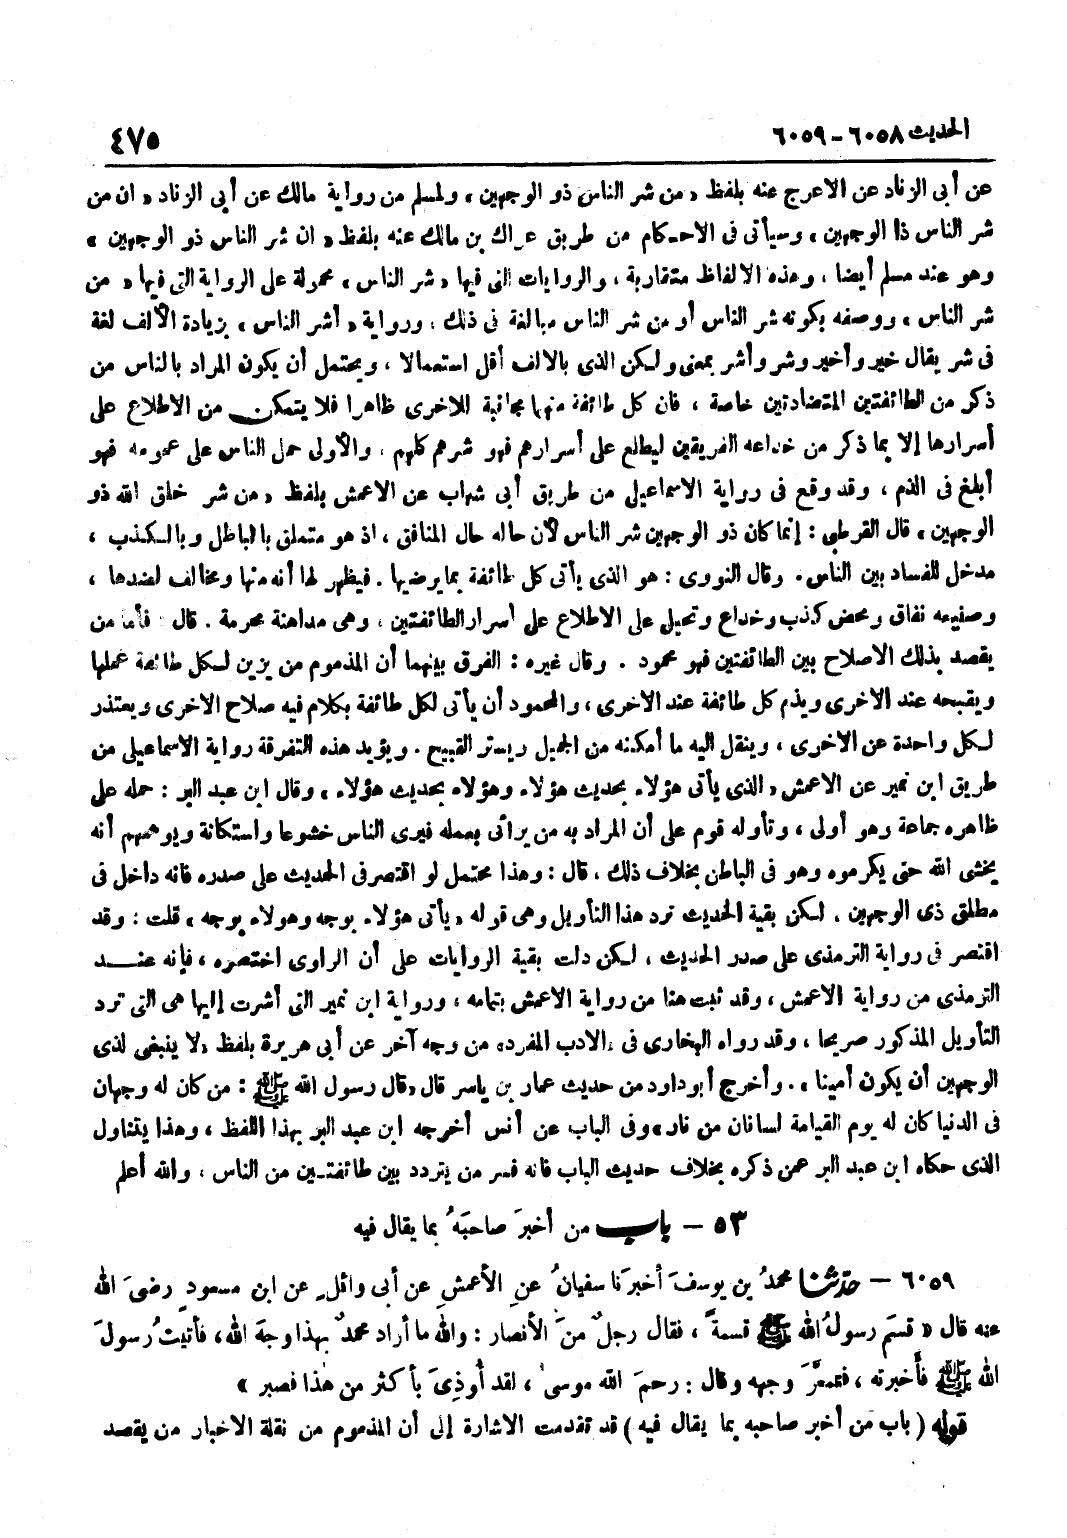 الحديث ٦٠٥٨ - ٦٠٥٩
٤٧٥
عن أبى الزناد عن الاعرج عنه بلفظ « من شر الناس ذو الوجهين ، ولمسلم من رواية مالك عن أبى الزناد « ان من
شر الناس ذا الوجهين ، وسيأتى فى الاحكام من طريق عراك بن مالك عنه بلفظ « ان شر الناس ذو الوجهين »
وهو عند مسلم أيضا ، وهذه الالفاظ متقاربة ، والروايات التى فيها « شر الناس » محمولة على الرواية التى فيها « من
شر الناس » ووصفه بكونه شر الناس أو من شر الناس مبالغة فى ذلك ، ورواية « أشر الناس » بزيادة الألف لغة
فى شر يقال خير وأخير وشر وأشر بمعنى ولكن الذى بالالف أقل استعمالا ، ويحتمل أن يكون المراد بالناس من
ذكر من الطائفتين المتضادتين خاصة ، فان كل طائفة منهما مجانبة للاخرى ظاهرا فلا يتمكن من الاطلاع على
أسرارها إلا بما ذكر من خداعه الفريقين ليطلع على أسرارهم فهو شرهم كلهم ، والأولى حمل الناس على عمومه فهو
أبلغ فى الذم ، وقد وقع فى رواية الاسماعيلى من طريق أبى شهاب عن الاعمش بلفظ « من شر خلق الله ذو
الوجهين » قال القرطبى : إنما كان ذو الوجهين شر الناس لأن حاله حال المنافق ، اذ هو متملق بالباطل وبالكذب ،
مدخل للفساد بين الناس . وقال النووى : هو الذى يأتى كل طائفة بما يرضيها . فيظهر لها أنه منها ومخالف لضدها ،
وصنيعه نفاق ومحض كذب وخداع وتحيل على الاطلاع على أسرار الطائفتين ، وهى مداهنة محرمة . قال : فأما من
يقصد بذلك الاصلاح بين الطائفتين فهو محمود . وقال غيره : الفرق بينهما أن المذموم من يزين لكل طائفة عملها
ويقبحه عند الاخرى ويذم كل طائفة عند الاخرى ، والمحمود أن يأتى لكل طائفة بكلام فيه صلاح الاخرى ويعتذر
لكل واحدة عن الاخرى ، وينقل اليه ما أمكنه من الجميل ويستر القبيح . ويؤيد هذه التفرقة رواية الاسماعيلى من
طريق ابن نمير عن الاعمش « الذى يأتى هؤلاء بحديث هؤلاء وهؤلاء بحديث هؤلاء » وقال ابن عبد البر : حمله على
ظاهره جماعة وهو أولى ، وتأوله قوم على أن المراد به من يرائى بعمله فيرى الناس خشوعا واستكانة ويوهمهم أنه
يخشى الله حتى يكرموه وهو فى الباطن بخلاف ذلك ، قال : وهذا محتمل لو اقتصر فى الحديث على صدره فانه داخل فى
مطلق ذى الوجهين ، لكن بقية الحديث ترد هذا التأويل وهى قوله « يأتى هؤلاء بوجه وهولاء بوجه » قلت : وقد
اقتصر فى رواية الترمذى على صدر الحديث ، لكن دلت بقية الروايات على أن الراوى اختصره ، فإنه عنـــد
الترمذى من رواية الاعمش ، وقد ثبت هنا من رواية الاعمش بتمامه ، ورواية ابن نمير التى أشرت إليها هى التى ترد
التأويل المذكور صريحا ، وقد رواه البخارى فى « الادب المفرد » من وجه آخر عن أبى هريرة بلفظ « لا ينبغى لذى
الوجهين أن يكون أمينا » . وأخرج أبو داود من حديث عمار بن ياسر قال « قال رسول الله ﷺ : من كان له وجهان
فى الدنيا كان له يوم القيامة لسانان من نار » وفى الباب عن أنس أخرجه ابن عبد البر بهذا اللفظ ، وهذا يتناول
الذى حكاه ابن عبد البر عمن ذكره بخلاف حديث الباب فانه فسر من يتردد بين طائفتين من الناس ، والله أعلم
٥٣ - باب من أخبرَ صاحبَهُ بما يقال فيه
٦٠٥٩ - حدّثنا محمدُ بن يوسفَ أخبرَنا سفيانُ عنِ الأعمشِ عن أبى وائلٍ عن ابن مسعودٍ رضىَ الله
عنه قال « قسمَ رسولُ الله ﷺ قسمةً ، فقال رجلٌ منَ الأنصار : والله ما أراد محمدٌ بهذا وجهَ الله ، فأتيتُ رسولَ
الله ﷺ فأخبرته ، فتمعَّرَ وجهه وقال : رحمَ الله موسىٰ ، لقد أُوذِىَ بأكثر من هٰذا فصبر »
قوله ( باب من أخبر صاحبه بما يقال فيه ) قد تقدمت الاشارة إلى أن المذموم من نقلة الاخبار من يقصد